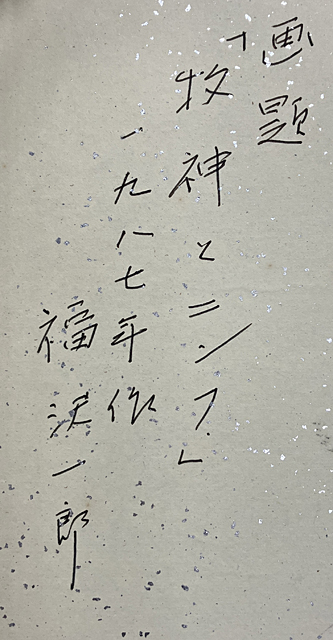 画題
「牧神とニンフ」
一九八七年作
福沢一郎